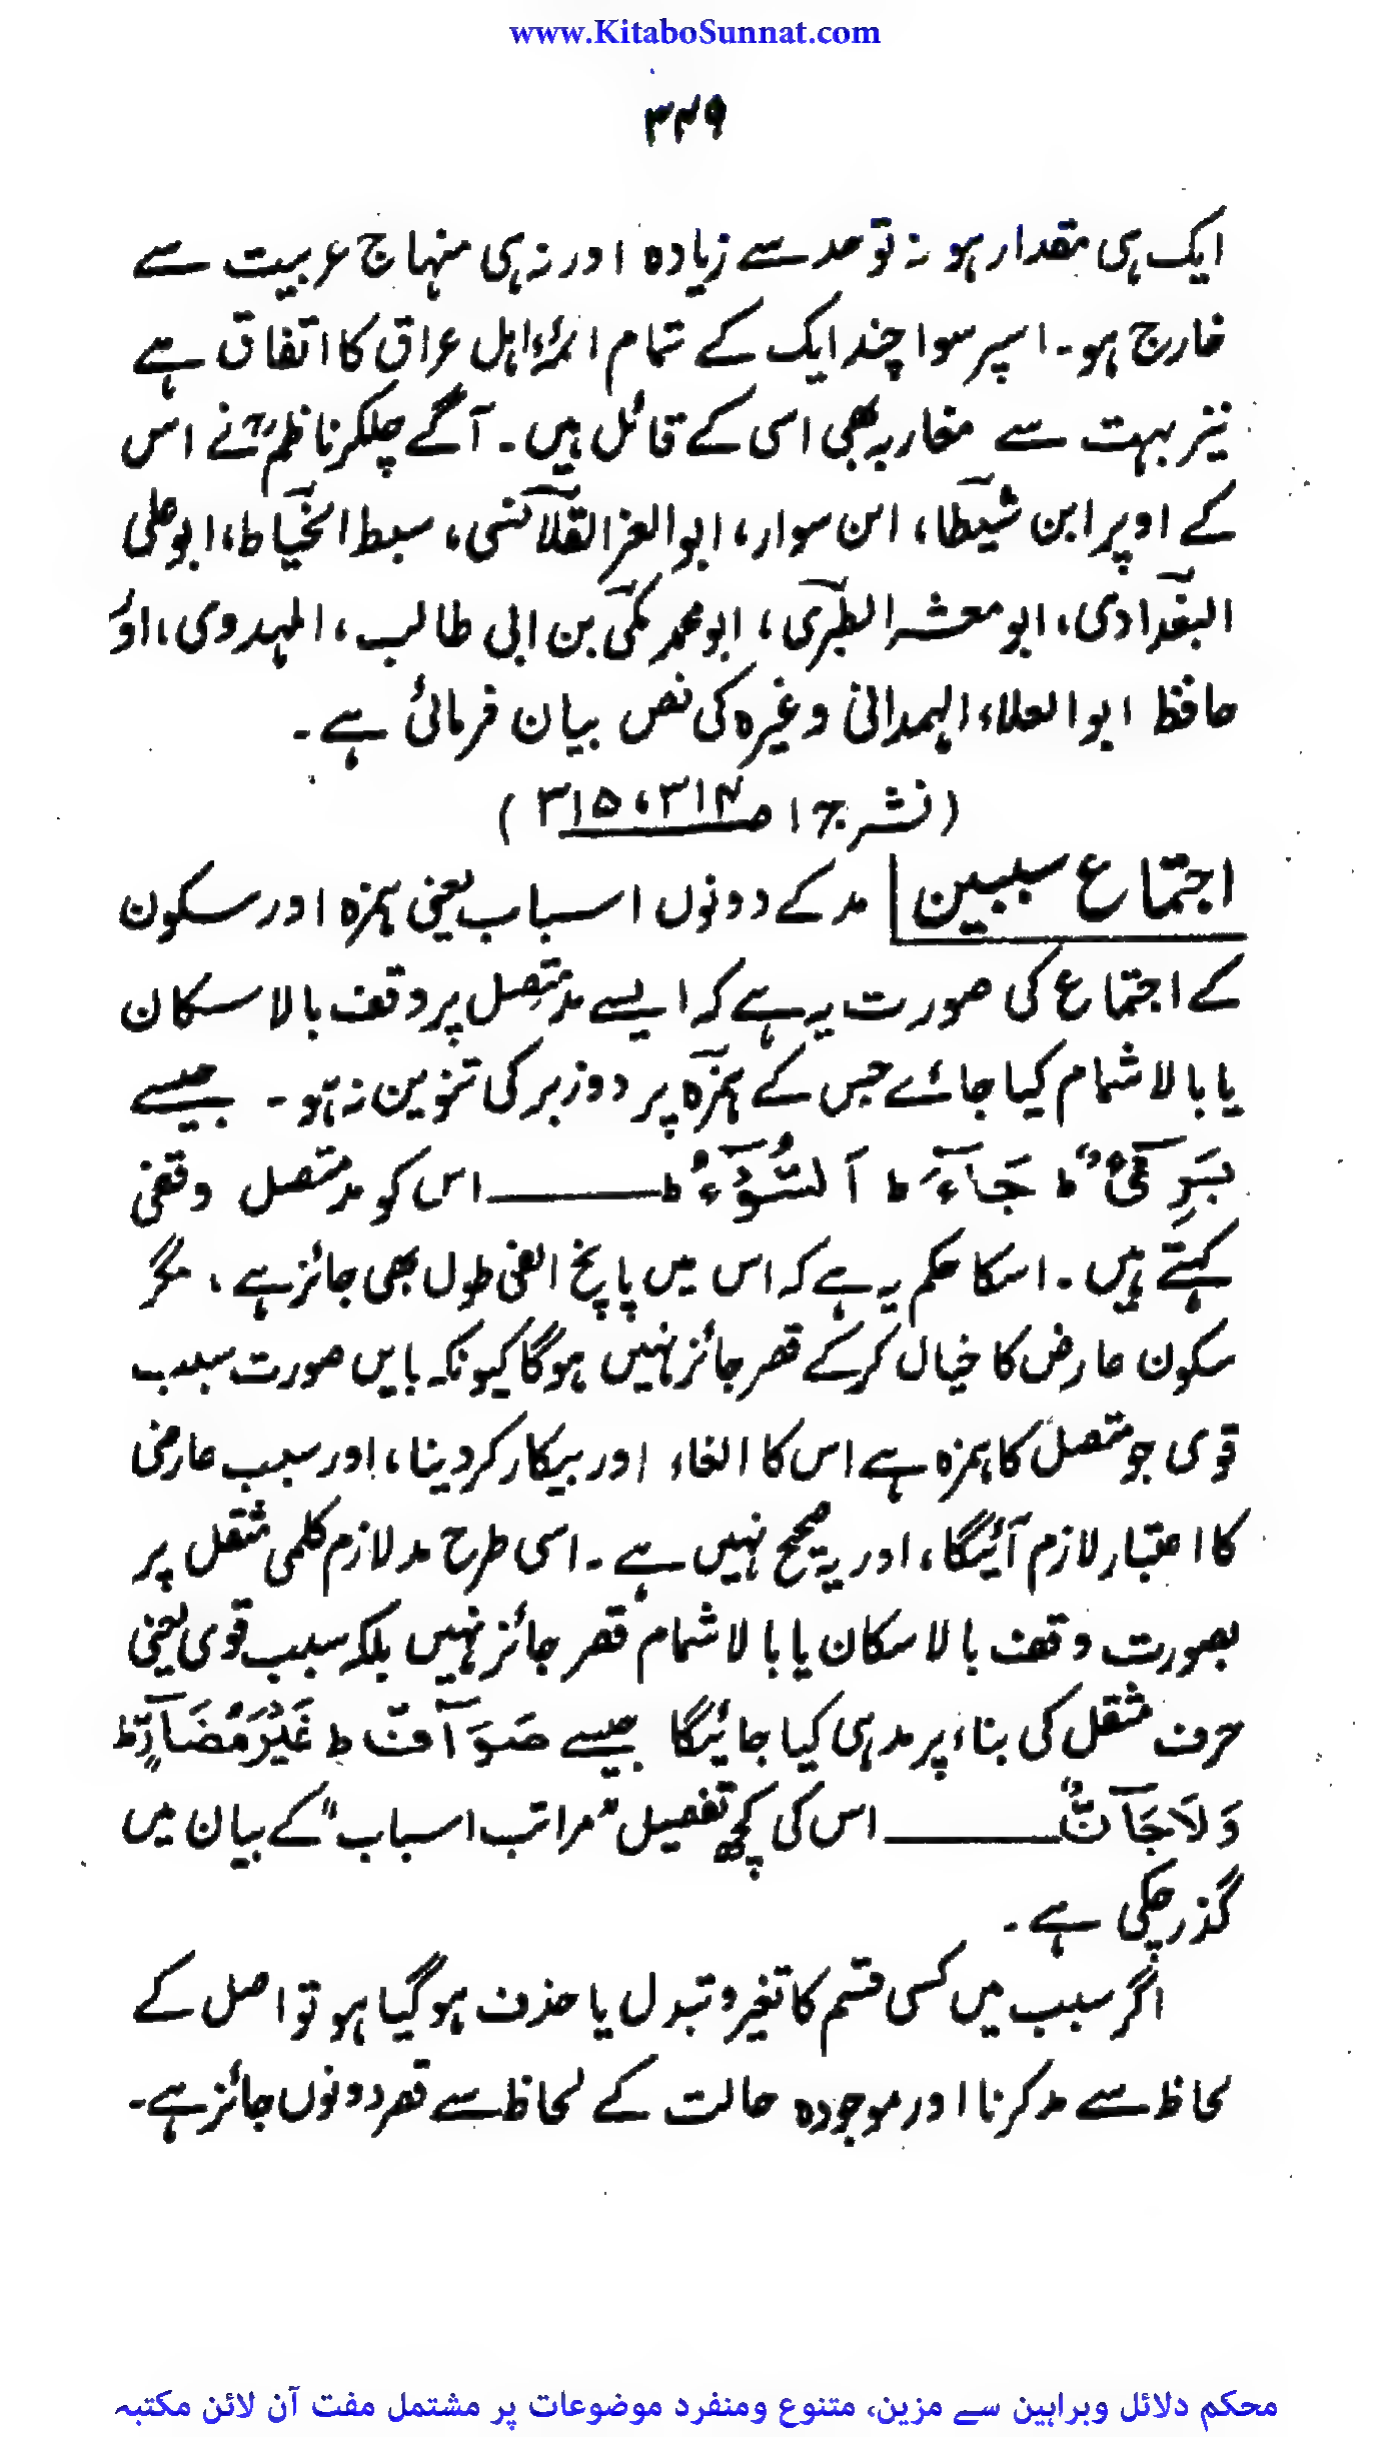 www.KitaboSunnat.com
۳۴۹
ایک ہی مقدار ہو نہ تو حد سے زیادہ اور نہ ہی منہاج عربیت سے
خارج ہو۔ اسپر سوا چند ایک کے تمام ائمۂ اہل عراق کا اتفاق ہے
نیز بہت سے مغاربہ بھی اسی کے قائل ہیں۔ آگے چلکر ناظمؒ نے اس
کے اوپر ابن شیطا، ابن سوار، ابو العز القلانسی، سبط الخیاط، ابو علی
البغدادی، ابو معشر الطبری، ابو محمد مکی بن ابی طالب، المہدوی، اور
حافظ ابو العلاء الہمدانی وغیرہ کی نص بیان فرمائی ہے۔
(نشر ج۱ صـ ۳۱۴، ۳۱۵)
اجتماع سببین مد کے دونوں اسباب یعنی ہمزہ اور سکون
کے اجتماع کی صورت یہ ہے کہ ایسے مد متصل پر وقف بالاسکان
یا بالاشمام کیا جائے جس کے ہمزہ پر دو زبر کی تنوین نہ ہو۔ جیسے
بَرِیْٓءٌ ط جَآءَ ط اَلسُّوْٓءُ ط ــــــ اس کو مد متصل وقفی
کہتے ہیں۔ اسکا حکم یہ ہے کہ اس میں پانچ الفی طول بھی جائز ہے، مگر
سکون عارض کا خیال کرکے قصر جائز نہیں ہوگا کیونکہ بایں صورت سبب
قوی جو متصل کا ہمزہ ہے اس کا الغاء اور بیکار کردینا، اور سبب عارضی
کا اعتبار لازم آئیگا، اور یہ صحیح نہیں ہے۔ اسی طرح مد لازم کلمی مثقل پر
بصورت وقف بالاسکان یا بالاشمام قصر جائز نہیں بلکہ سبب قوی یعنی
حرف مثقل کی بناء پر مد ہی کیا جائیگا جیسے صَوَآفَّ ط غَیْرَ مُضَآرٍّ ط
وَلَا جَآنٌّ ــــــ اس کی کچھ تفصیل "مراتب اسباب" کے بیان میں
گذر چکی ہے۔
اگر سبب میں کسی قسم کا تغیر و تبدل یا حذف ہوگیا ہو تو اصل کے
لحاظ سے مد کرنا اور موجودہ حالت کے لحاظ سے قصر دونوں جائز ہے۔
محکم دلائل وبراہین سے مزین، متنوع ومنفرد موضوعات پر مشتمل مفت آن لائن مکتبہ